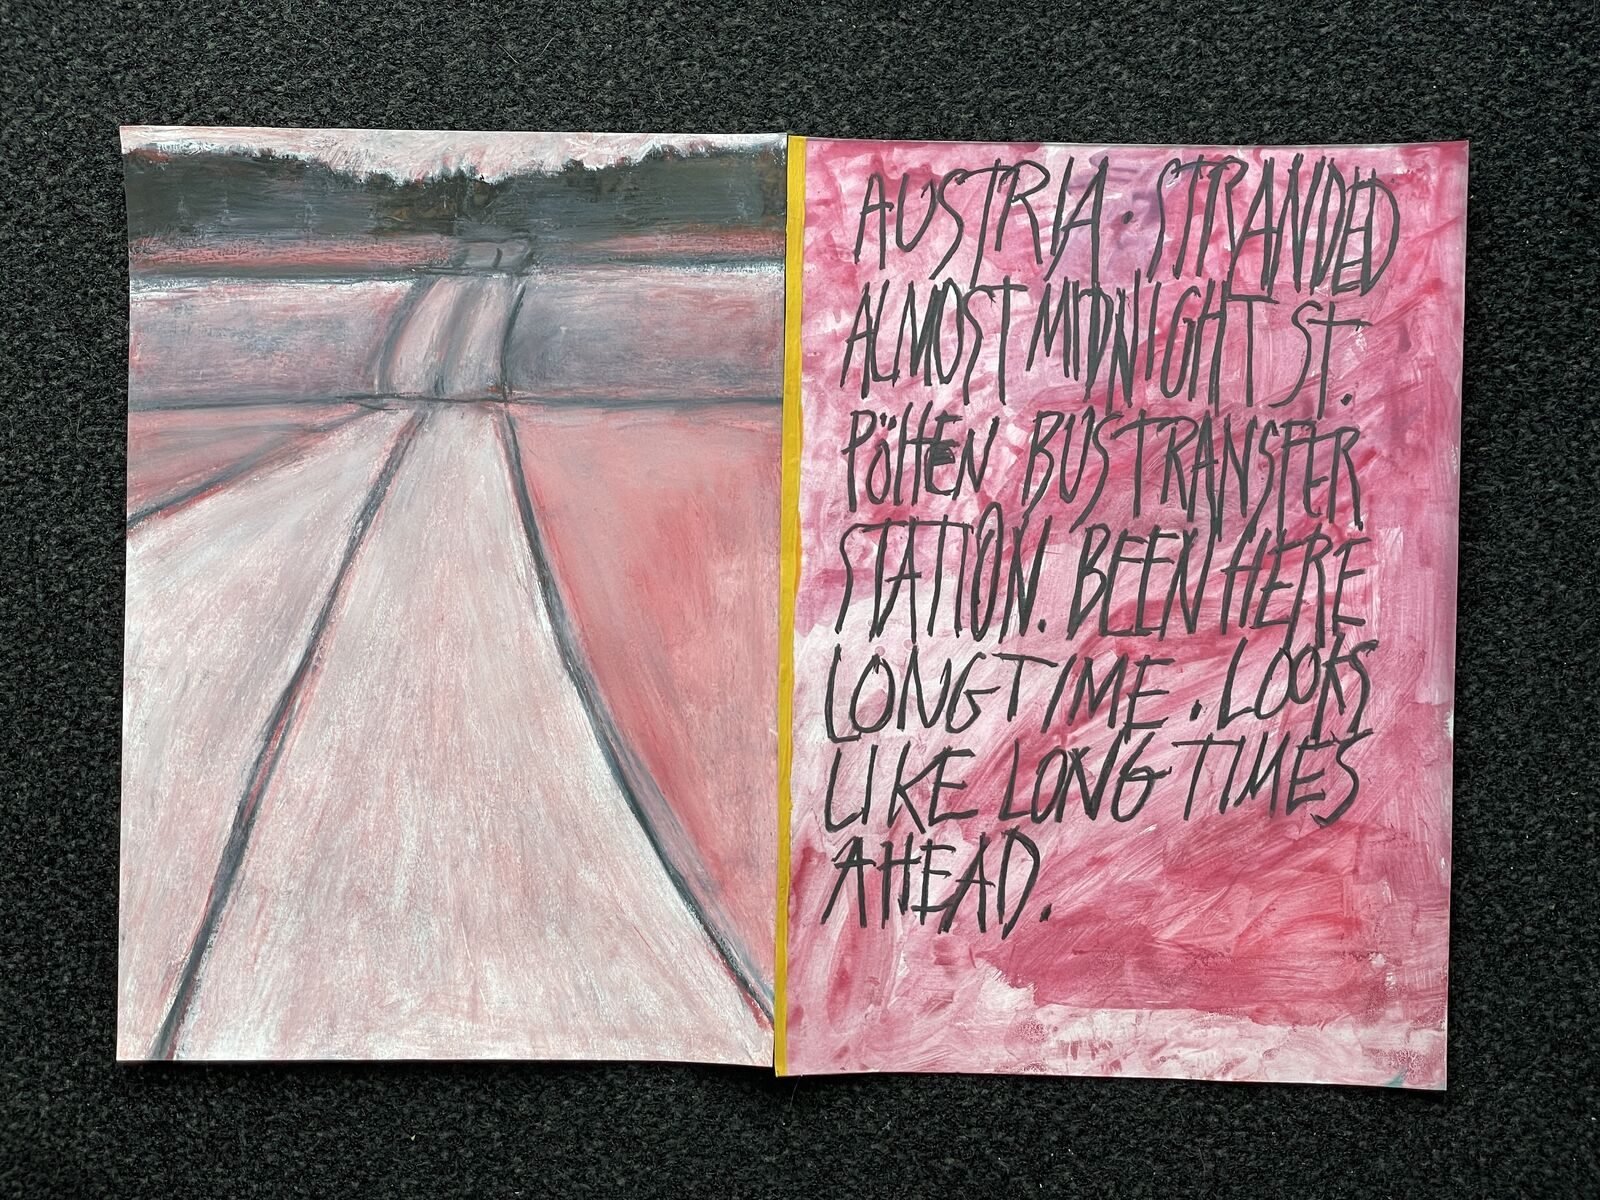 AUSTRIA. STRANDED
ALMOST MIDNIGHT ST.
PÖHEN BUS TRANSFER
STATION. BEEN HERE
LONG TIME. LOOKS
LIKE LONG TIMES
AHEAD.